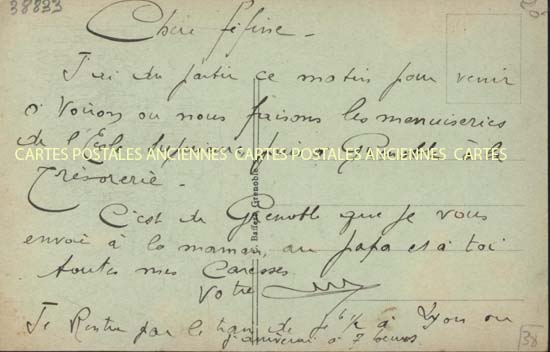 38833
Chère féfisse -
J'ai du partir ce matin pour venir
à Voiron ou nous faisons les menuiseries
de l'École Supérieure puis a Grenoble à la
CARTES POSTALES ANCIENNES CARTES POSTALES ANCIENNES CARTES
Trésorerie -
C'est de Grenoble que je vous
envoi à la maman, au papa et à toi
toutes mes Caresses
Votre
Je Rentre par le train de 6 ½ à Lyon ou
j'arriverai à 7 heures
Grenoble
38